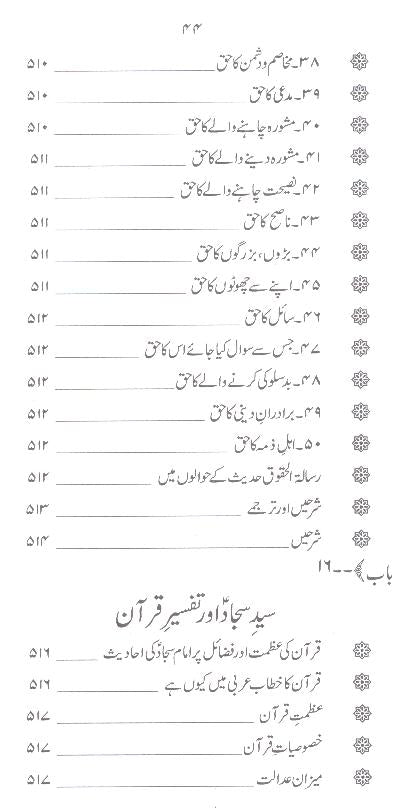 ۴۴
۳۸۔مخاصم و دشمن کا حق ۵۱۰
۳۹۔ مدعی کا حق ۵۱۰
۴۰۔ مشورہ چاہنے والے کا حق ۵۱۰
۴۱۔ مشورہ دینے والے کا حق ۵۱۱
۴۲۔ نصیحت چاہنے والے کا حق ۵۱۱
۴۳۔ ناصح کا حق ۵۱۱
۴۴۔ بڑوں، بزرگوں کا حق ۵۱۱
۴۵۔ اپنے سے چھوٹوں کا حق ۵۱۱
۴۶۔ سائل کا حق ۵۱۲
۴۷۔ جس سے سوال کیا جائے اس کا حق ۵۱۲
۴۸۔ بدسلوکی کرنے والے کا حق ۵۱۲
۴۹۔ برادرانِ دینی کا حق ۵۱۲
۵۰۔ اہلِ ذمہ کا حق ۵۱۲
رسالۃ الحقوق حدیث کے حوالوں میں ۵۱۲
شرحیں اور ترجمے ۵۱۳
شرحیں ۵۱۴
باب ﴾۔۔۱۶
سیدِ سجادؑ اور تفسیرِ قرآن
قرآن کی عظمت اور فضائل پر امام سجادؑ کی احادیث ۵۱۶
قرآن کا خطاب عربی میں کیوں ہے ۵۱۶
عظمتِ قرآن ۵۱۷
خصوصیاتِ قرآن ۵۱۷
میزانِ عدالت ۵۱۷